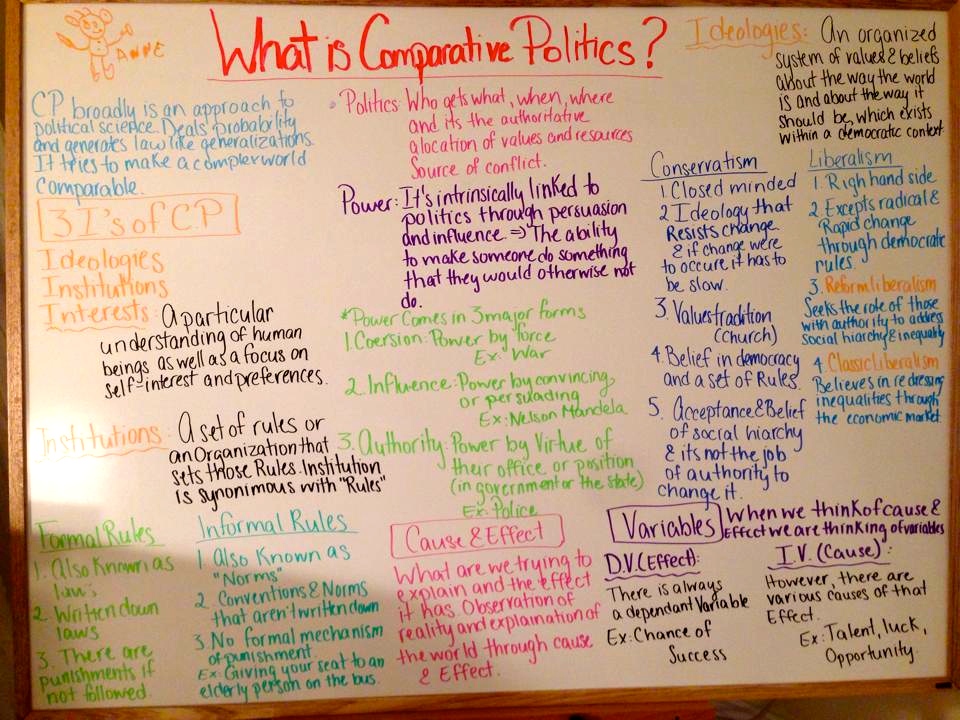 ANNE
What is Comparative Politics?
CP broadly is an approach to
political science. Deals' probability
and generates law like generalizations.
It tries to make a complex world
comparable.
3 I's of CP
Ideologies
Institutions
Interests: A particular
understanding of human
beings as well as a focus on
self-interest and preferences.
Institutions: A set of rules or
an Organization that
sets those Rules. Institution
is synonimous with "Rules"
Formal Rules
1. Also Known as
laws
2. Written down
laws
3. There are
punishments if
not followed.
Informal Rules
1. Also Known as
"Norms"
2. Conventions & Norms
that aren't written down
3. No formal mechanism
of punishment.
Ex: Giving your seat to an
elderly person on the bus.
Politics: Who gets what, when, where
and its the authoritative
alocation of values and resources
Source of conflict.
Power: It's intrinsically linked to
politics through persuasion
and influence. => The ability
to make someone do something
that they would otherwise not
do.
*Power Comes in 3 major forms
1. Coersion: Power by force
Ex: War
2. Influence: Power by convincing
or persuading
Ex: Nelson Mandela
3. Authority: Power by Virtue of
their office or position
(in government or the state)
Ex: Police
Cause & Effect
What are we trying to
explain and the effect
it has Observation of
reality and explaination of
the world through cause
& Effect.
Ideologies: An organized
system of values & beliefs
about the way the world
is and about the way it
should be, which exists
within a democratic context.
Conservatism
1. Closed minded
2 Ideology that
Resists change
& if change were
to occure it has to
be slow.
3. Values tradition
(Church)
4. Belief in democracy
and a set of Rules.
5. Acceptance & Belief
of social hiarchy
& its not the job
of authority to
change it.
Liberalism
1. Righ hand side
2. Excepts radical &
Rapid change
through democratic
rules.
3. Reform liberalism
Seeks the role of those
with authority to address
social hiarchy & inequality
4. Classic liberalism
Believes in re dressing
inequalities through
the economic market.
Variables When we think of cause &
Effect we are thinking of variables
D.V. (Effect):
There is always
a dependant Variable
Ex: Chance of
Success
I.V. (Cause):
However, there are
various causes of that
Effect.
Ex: Talent, luck,
Opportunity.